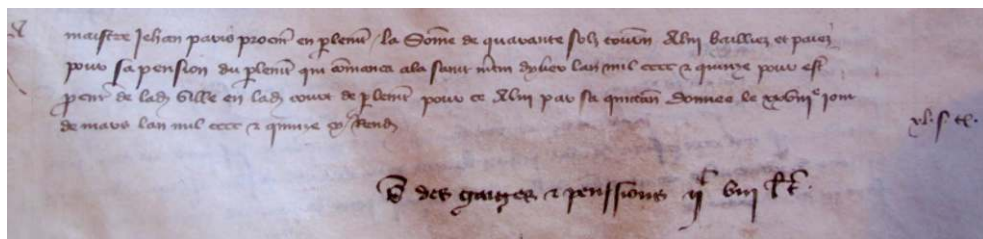 A maistre Jehan paris procur en plemt la Some de quarante solz tourn A luy baillez et paiez
pour sa pension du plemt qui comanca ala saint mtin dyver lan mil cccc & quinze pour estre
pcur de lad ville en lad court de plemt pour ce A luy par sa quictan donnee le xxviii e jour
de mars lan mil cccc & quinze cy Rend xl s t.
des gaiges & penssions ii c viii l t.